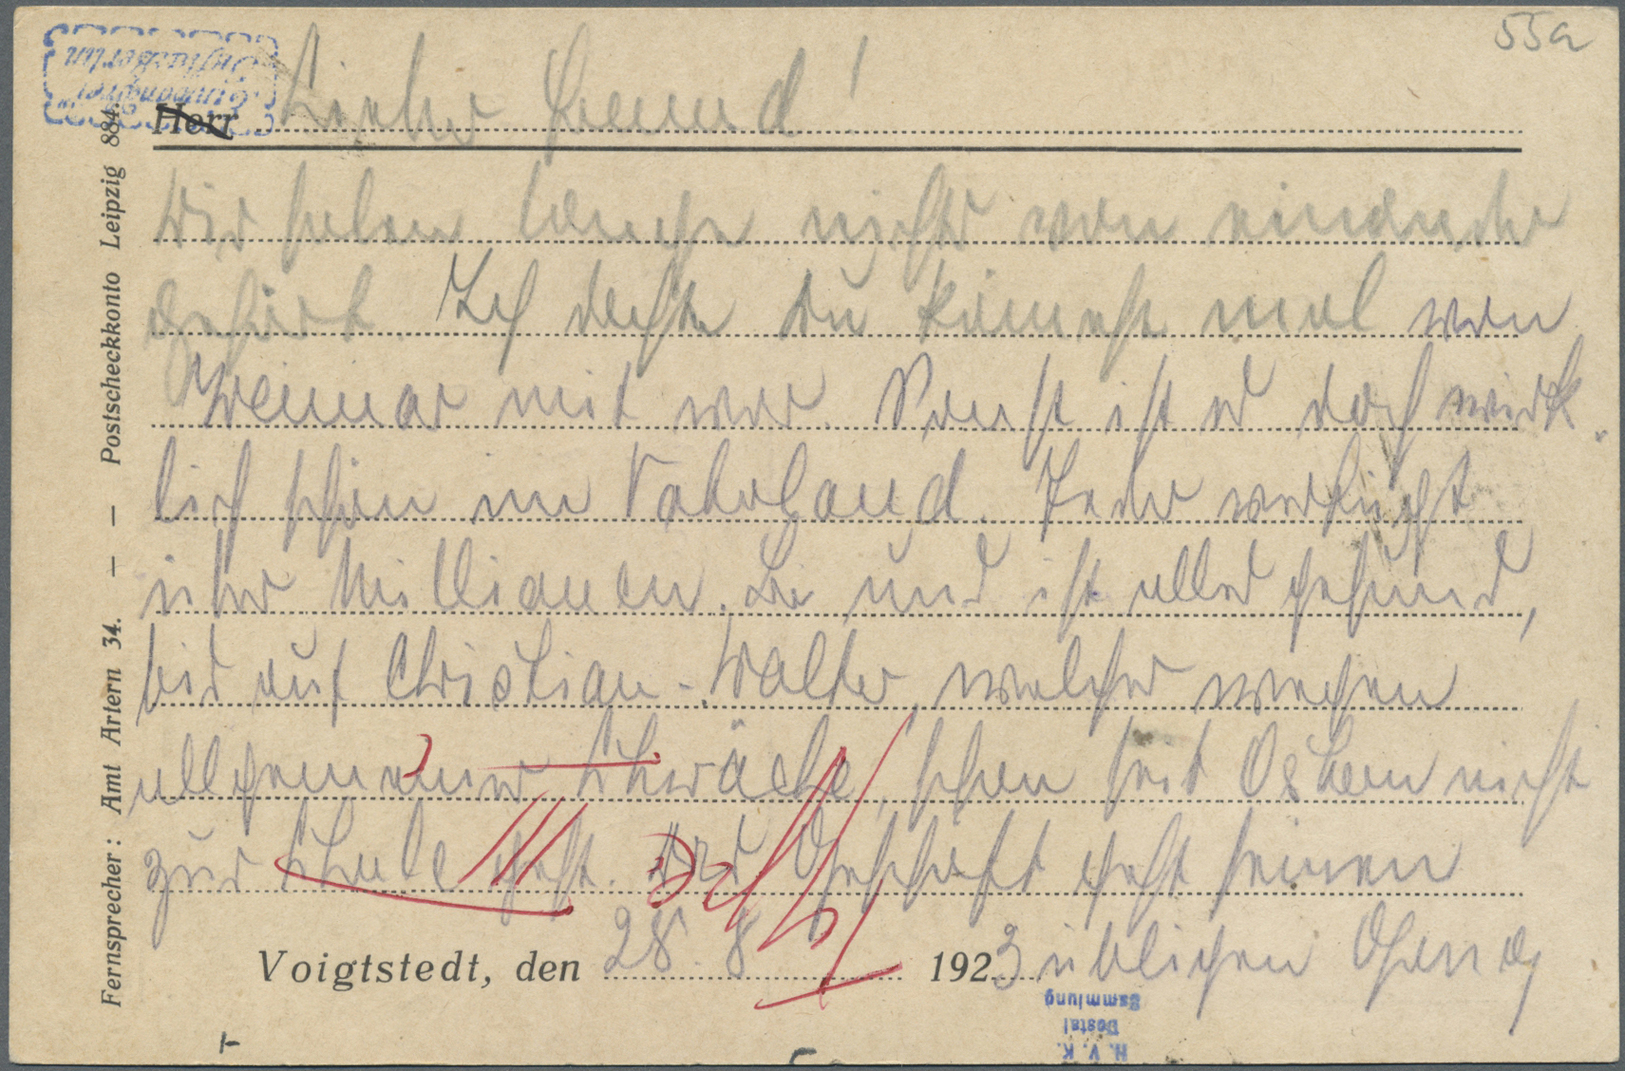 55a
Herr Lieber Freund!
Wir haben lange nichts von einander
gehört. Ich dachte du kämest mal von
Weimar mit vor. Sonst ist es doch wirk-
lich schön im Vaterland. Jeder verfügt
über Millionen. Bei uns ist alles gesund,
bis auf Christian-Walter, welcher wegen
allgemeiner Schwäche, schon seit Ostern nicht
zur Schule geht. Das Geschäft geht seinen
Voigtstedt, den 28. 8. 1923 üblichen Gang
Fernsprecher: Amt Artern 34. — — Postscheckkonto Leipzig 884
H. V. K.
Dostal
Sammlung